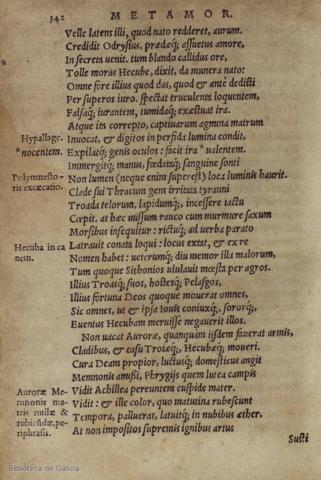 342 METAMOR.
Velle latens illi, quod nato redderet, aurum.
Credidit Odrysius, prædæq; assuetus amore,
In secreta uenit. tum blando callidus ore,
Tolle moras Hecube, dixit, da munera nato:
Omne fore illius quod das, quod & antè dedisti
Per superos iuro. spectat truculenta loquentem,
Falsaq; iurantem, tumidaq; exæstuat ira.
Atque ita correpto, captiuarum agmina matrum
Hypallage. Inuocat, & digitos in perfida lumina condit,
*nocentem. Expilatq; genis oculos : facit ira * ualentem.
Immergitq; manus, fœdataq; sanguine sonti
Polymnesto-
ris excæcatio. Non lumen (neque enim superest) loca luminis haurit.
Clade sui Thracum gens irritata tyranni
Troada telorum, lapidumq; incessere iactu
Cœpit. at hæc missum rauco cum murmure saxum
Morsibus insequitur : rictuq; ad uerba parato
Hecuba in ca
nem. Latrauit conata loqui : locus extat, & ex re
Nomen habet : ueterumq; diu memor illa malorum,
Tum quoque Sithonios ululauit mœsta per agros.
Illius Troasq; suos, hostesq; Pelasgos,
Illius fortuna Deos quoque mouerat omnes,
Sic omnes, ut & ipsa Iouis coniuxq;, sororq;,
Euentus Hecubam meruisse negauerit illos.
Non uacat Auroræ, quanquàm ijsdem fauerat armis,
Cladibus, & casu Troiæq;, Hecubæq; moueri.
Cura Deam propior, luctusq; domesticus angit
Memnonis amissi, Phrygijs quem lutea campis
Auroræ Me-
mnonis ma-
tris rutilæ &
rubicūdæ, pe-
riphrasis. Vidit Achillea pereuntem cuspide mater.
Vidit : & ille color, quo matutina rubescunt
Tempora, palluerat, latuitq; in nubibus æther.
At non impositos supremis ignibus artus
Susti
Biblioteca de Galicia